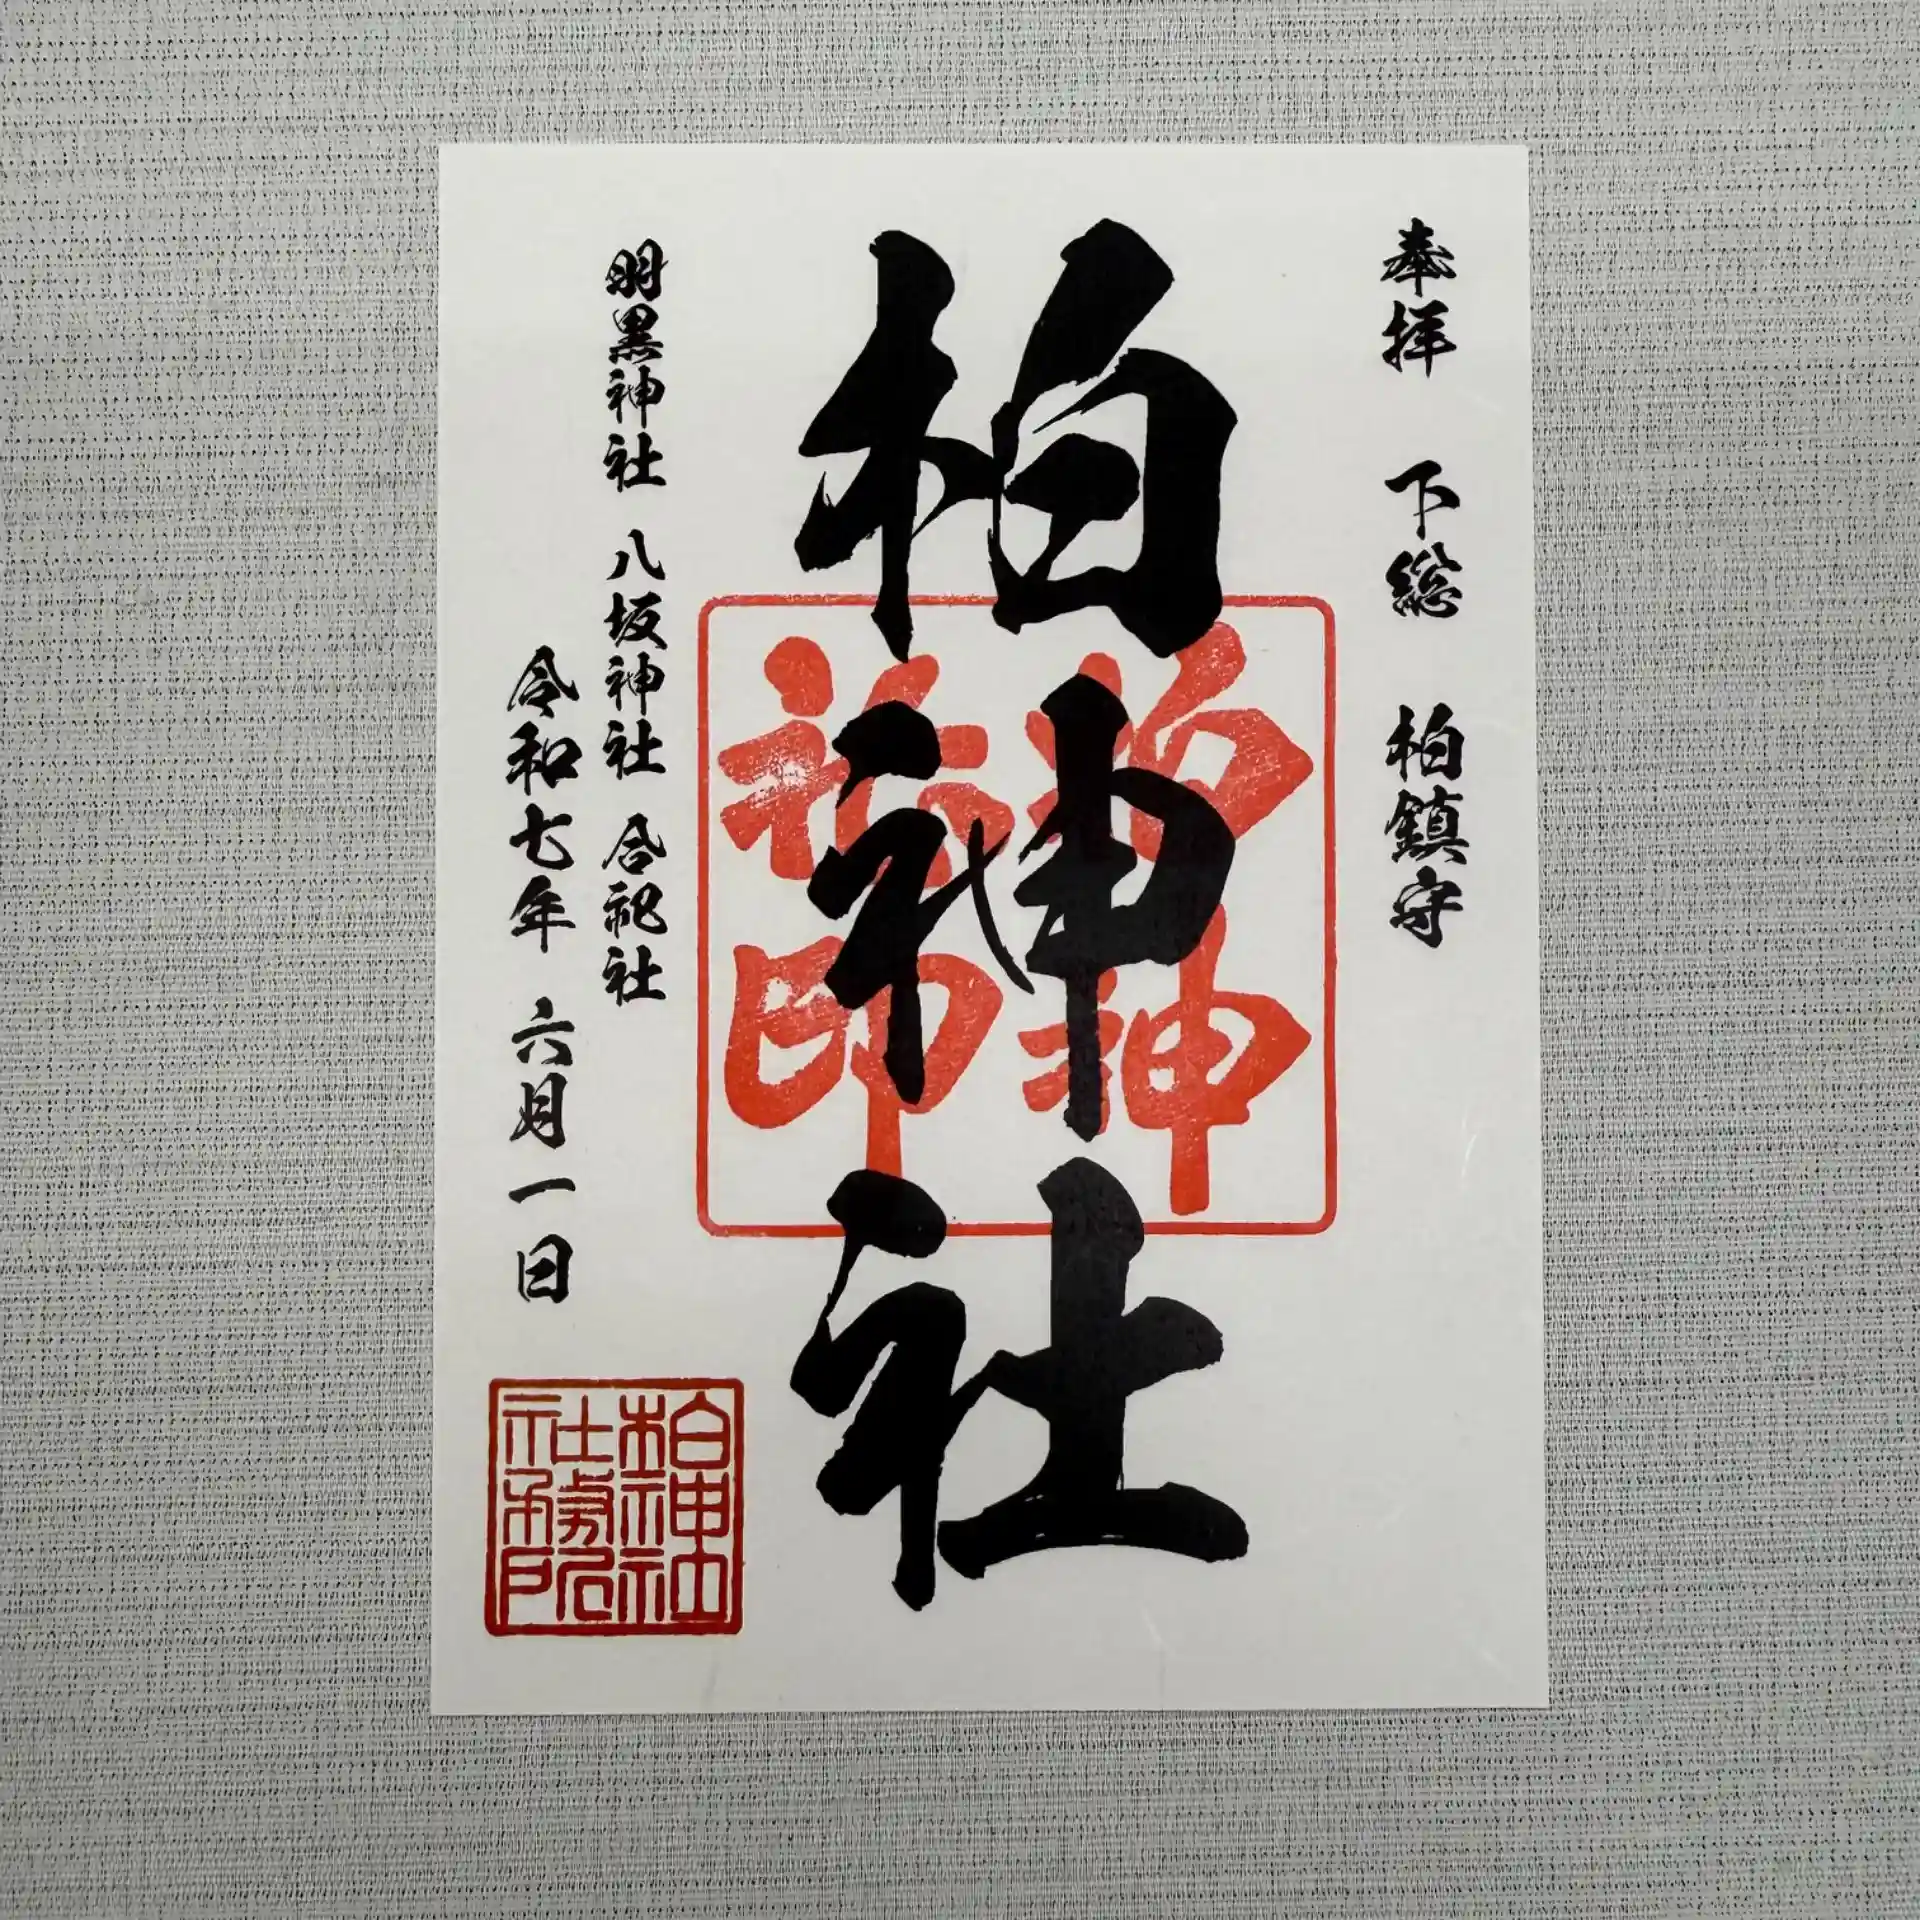 奉拝 下総 柏鎮守
柏神社
柏神社印
羽黒神社 八坂神社 合祀社
令和七年 六月一日
柏神社
社務所